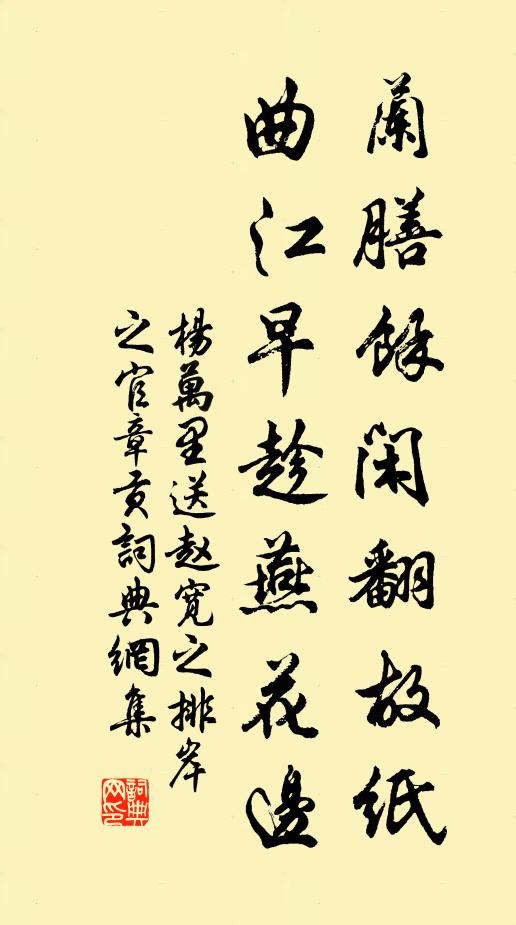 蘭膳餘闲翻故紙
曲江早趁燕花邊
楊萬里送赵寬之排岸
之官章贡詞典網集
詞典网印